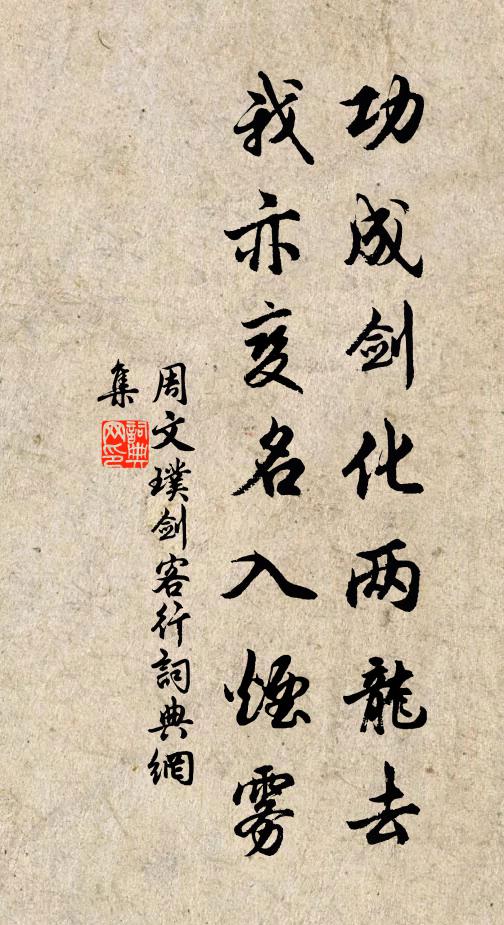 功成剑化两龍去
我亦变名入煙雾
周文璞剑客行詞典網
集
詞典
网印